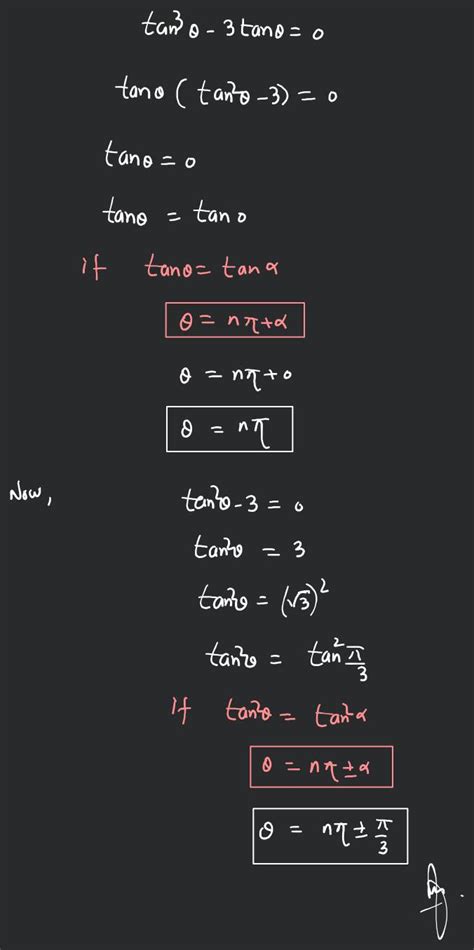 tan³θ - 3tanθ = 0
tanθ (tan²θ - 3) = 0
tanθ = 0
tanθ = tan0
if tanθ = tanα
θ = nπ+α
θ = nπ+0
θ = nπ
Now, tan²θ - 3 = 0
tan²θ = 3
tan²θ = (√3)²
tan²θ = tan²π/3
if tan²θ = tan²α
θ = nπ±α
θ = nπ±π/3